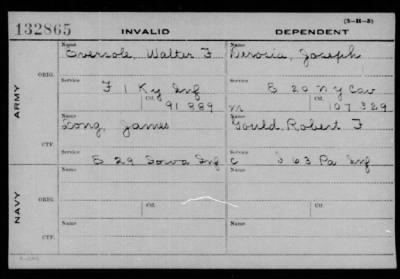 132865 INVALID (3-H-3) DEPENDENT
ARMY
ORIG.
Name Name
Eversole, Walter F Derocia, Joseph
Service Service
F 1 Ky Inf E 20 N Y Cav
Ctf. Ctf.
91 889 m 107 329
CTF.
Name Name
Long, James Gould, Robert F
Service Service
E 29 Iowa Inf C 63 Pa Inf
NAVY
ORIG.
Name Name
Ctf. Ctf.
CTF.
Name Name